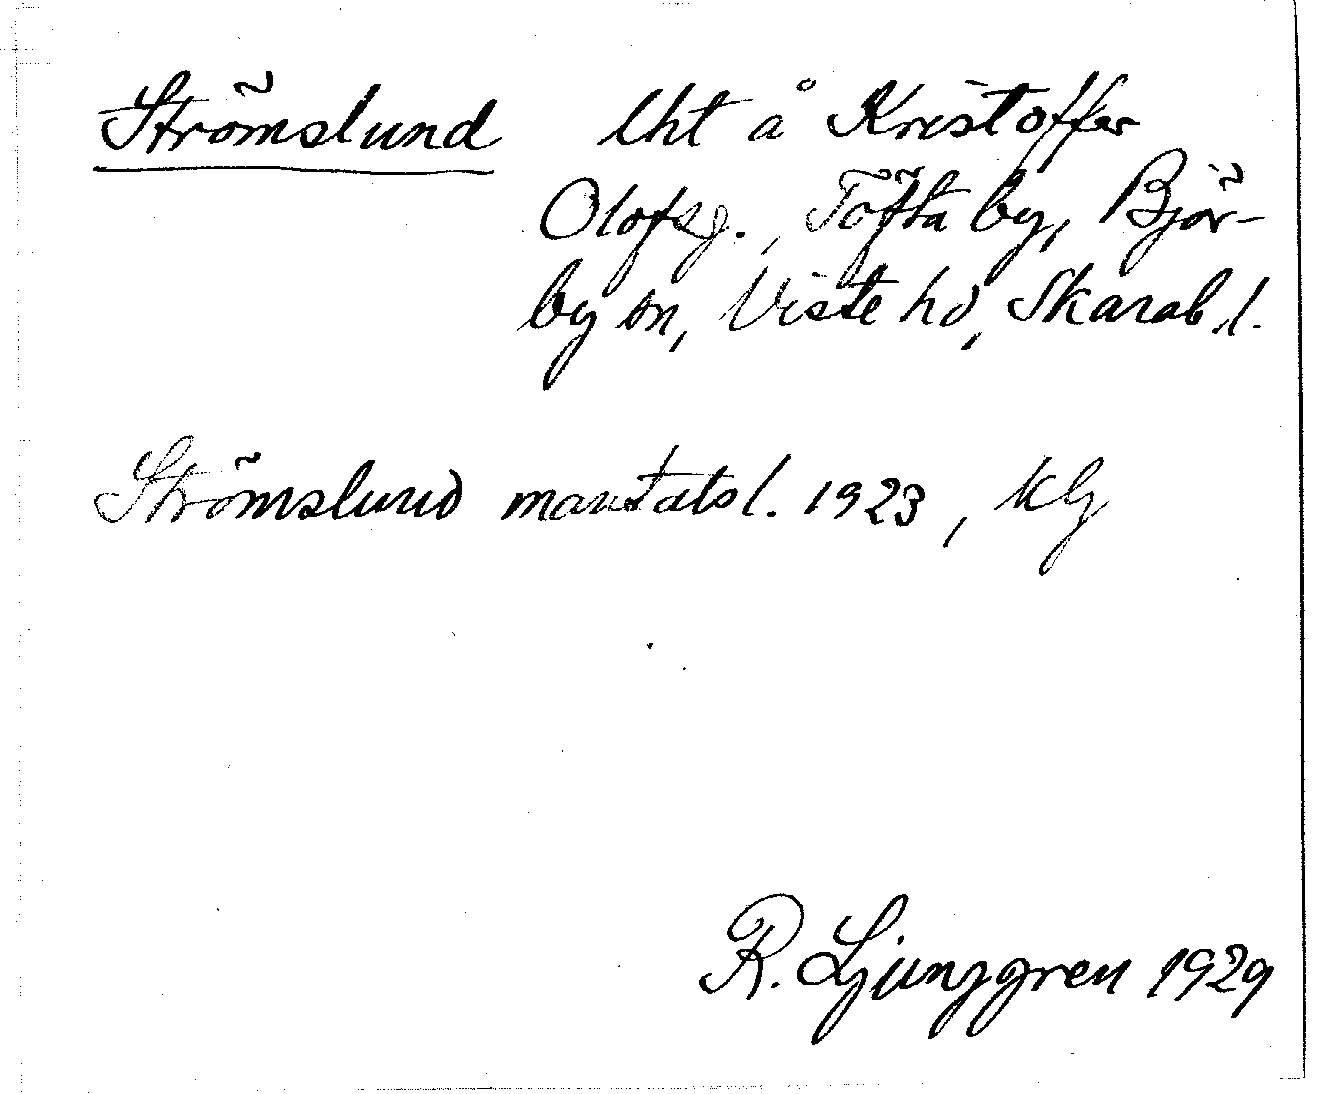 Strömslund lht å Kristoffer
Olofsg., Töfta by, Björ-
by sn, Viste hd, Skarab. l.
Strömslund mantalsl. 1923, klg
R. Ljunggren 1929